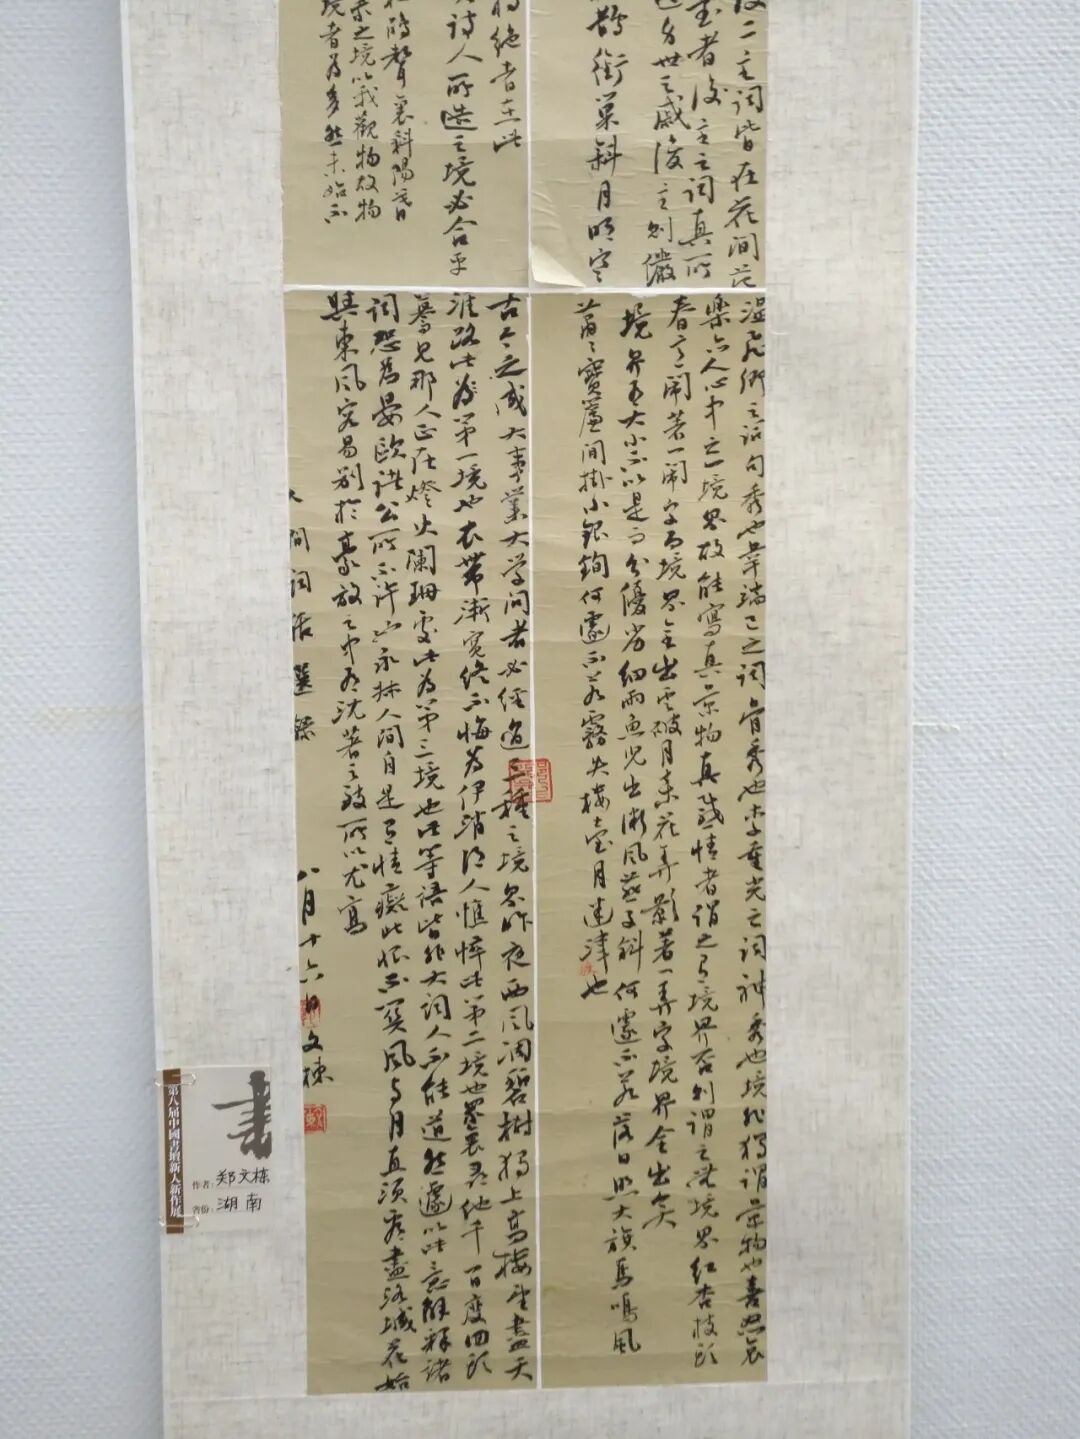 二主词皆在花间范
者後主之词真所
身世之戚後主则儼
鹊衔巢斜月明寒
绝者在此
诗人所造之境必合乎
聲裏斜陽暮
之境以我觀物故物
境者为多然未始不
温飛卿之词句秀也韋端己之词骨秀也李重光之词神秀也境非独謂景物也喜怒哀
樂亦人心中之一境界故能寫真景物真感情者謂之有境界否则謂之無境界红杏枝头
春意闹著一闹字而境界全出雲破月来花弄影著一弄字境界全出矣
境界有大小不以是而分優劣细雨鱼兒出微风燕子斜何遽不若落日照大旗馬鳴风
蕭〻寶簾间掛小银鉤何遽不若霧失楼台月迷津也
古今之成大事業大学问者必经过三種之境界昨夜西风凋碧树独上高楼望盡天
涯路此为第一境也衣带渐宽终不悔为伊消得人憔悴此第二境也衆裏寻他千百度回头
驀見那人正在燈火阑珊處此为第三境也此等语皆非大词人不能道然遽以此意解释诸
词恐为晏歐诸公所不许也永叔人间自是有情癡此恨不関风与月直须看盡洛城花始
与東风容易别於豪放之中有沈著之致所以尤高
人间词话選録
八月十六日文栋
書
第八届中國書壇新人新作展
作者：郑文栋
省份：湖南